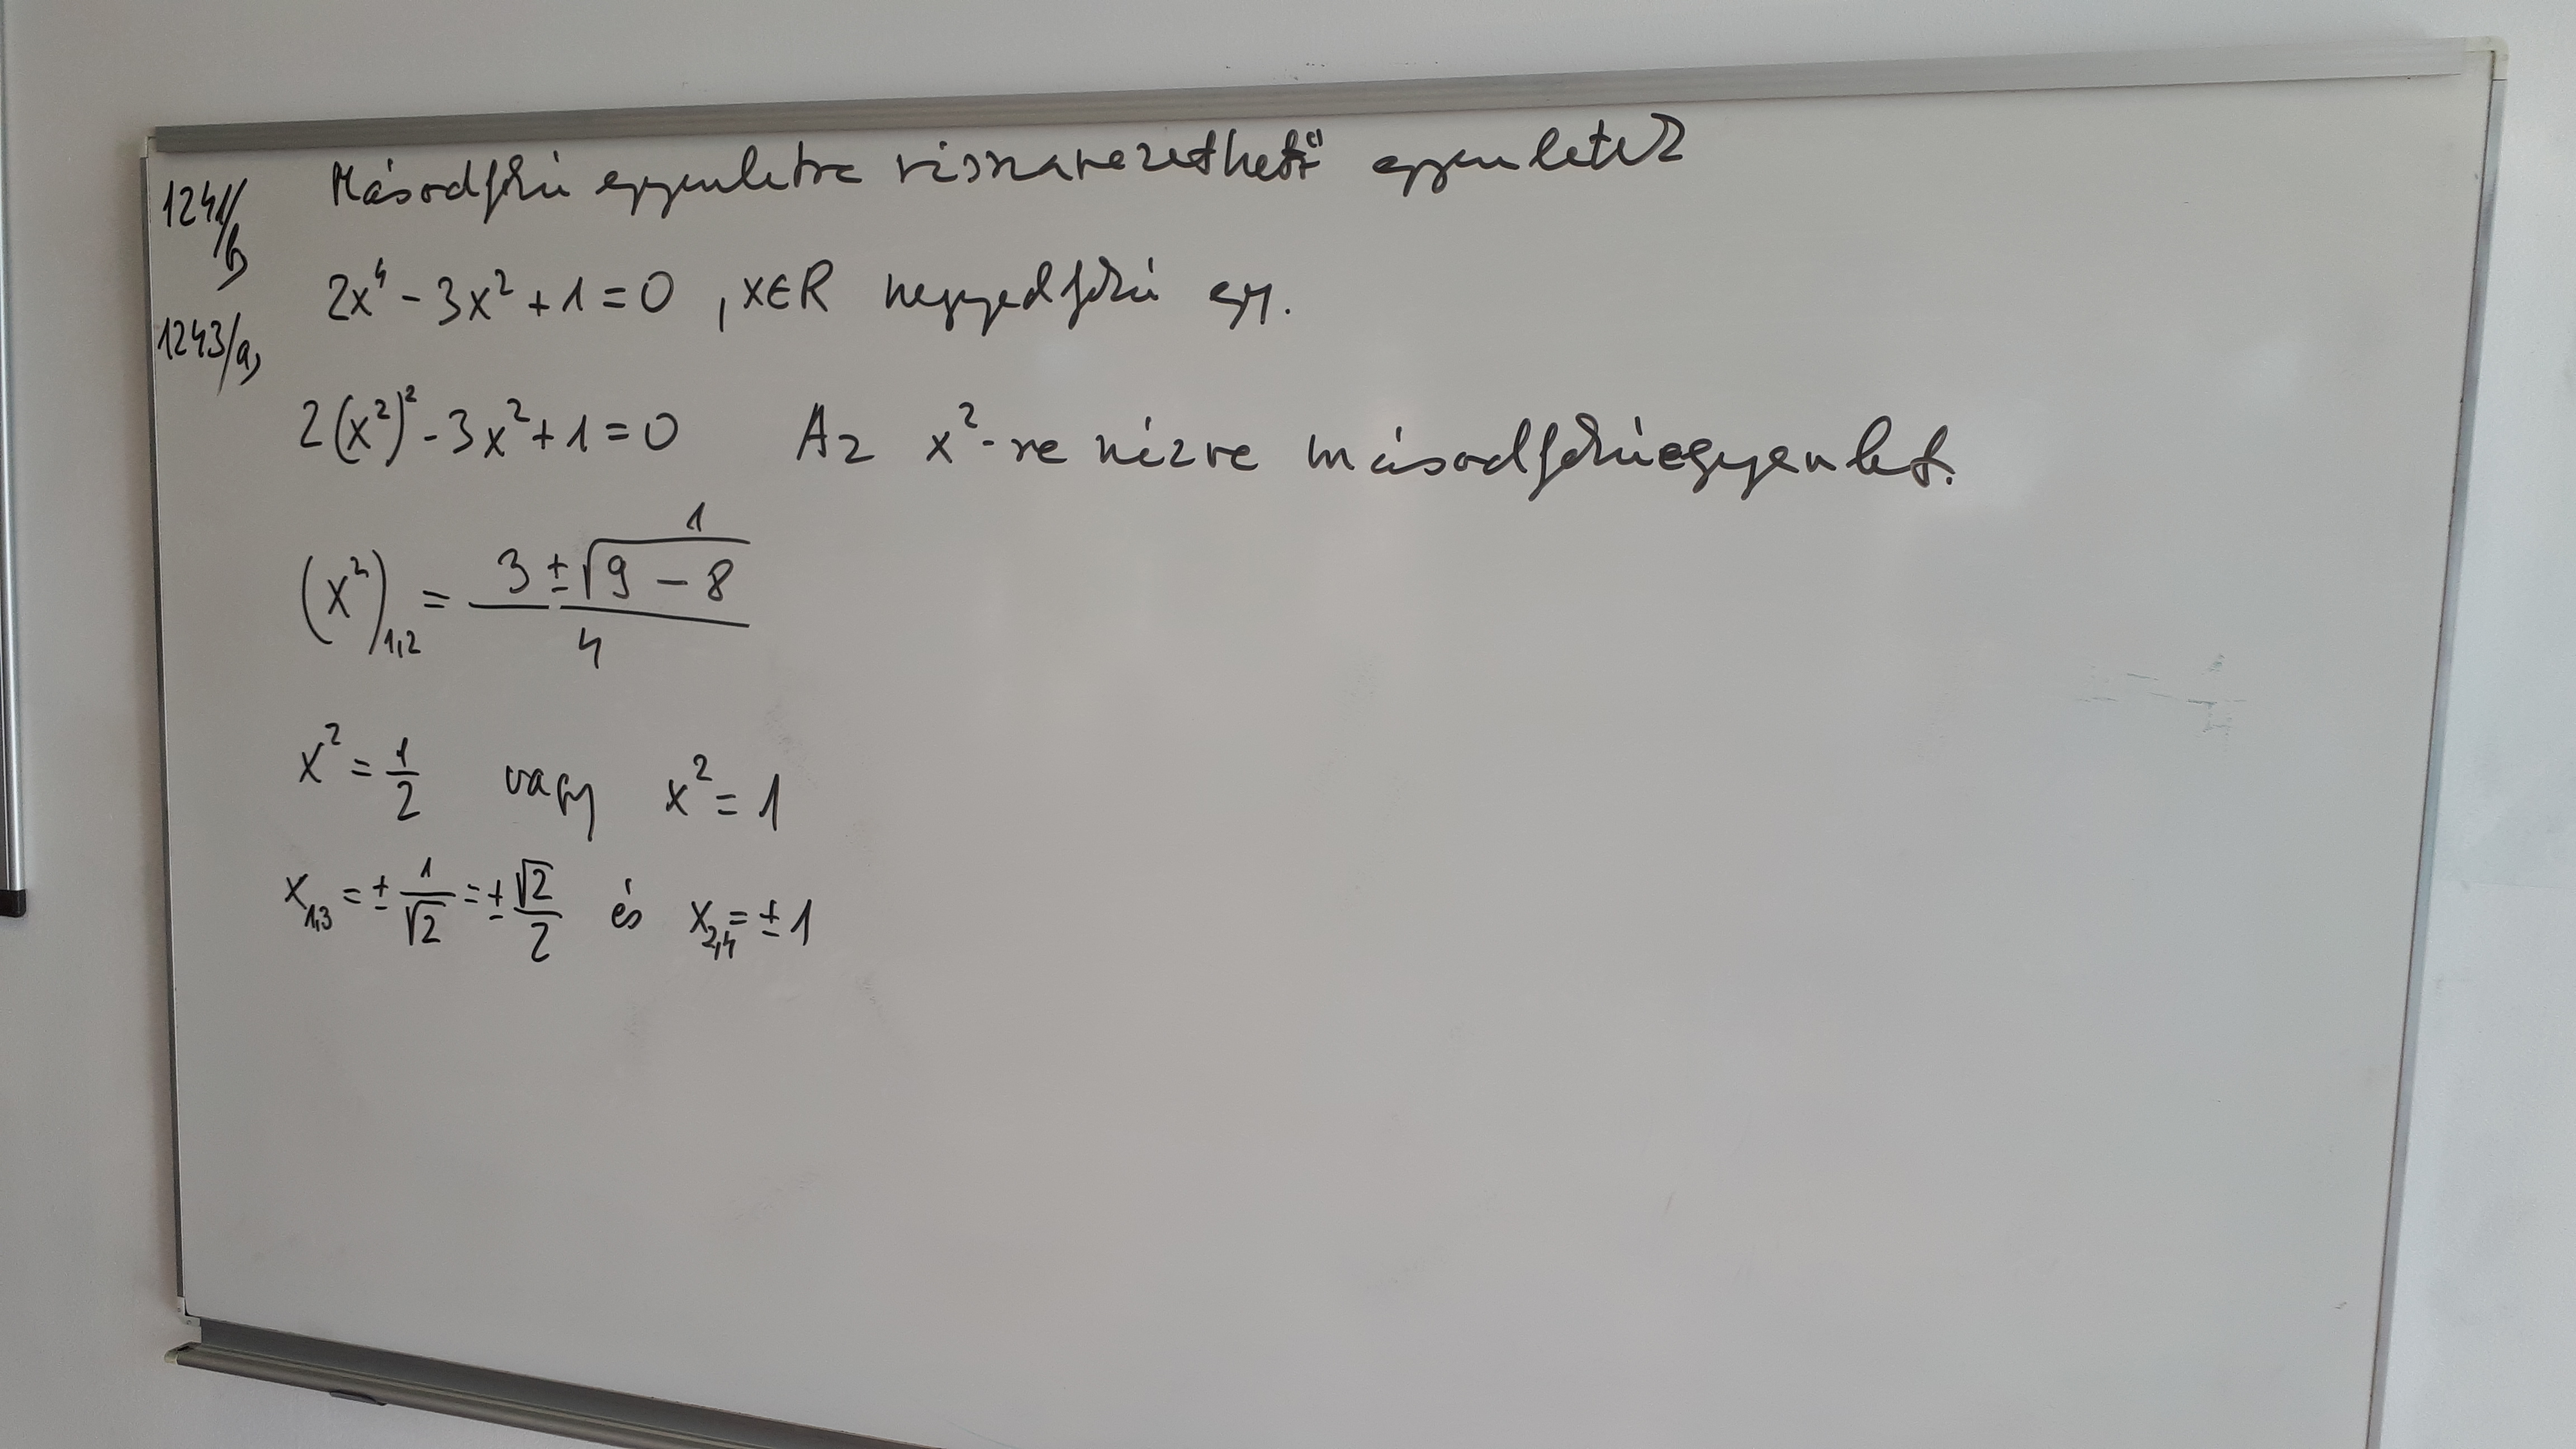 1241/b) Másodfokú egyenletre visszavezethető egyenletek
2x⁴ - 3x² + 1 = 0 , x∈R negyedfokú egy.
1243/a,
2(x²)² - 3x² + 1 = 0 Az x²-re nézve másodfokú egyenlet.
(x²)₁,₂ = (3 ± √(9 - 8)) / 4
1
x² = 1/2 vagy x² = 1
x₁,₃ = ± 1/√2 = ± √2/2 és x₂,₄ = ± 1